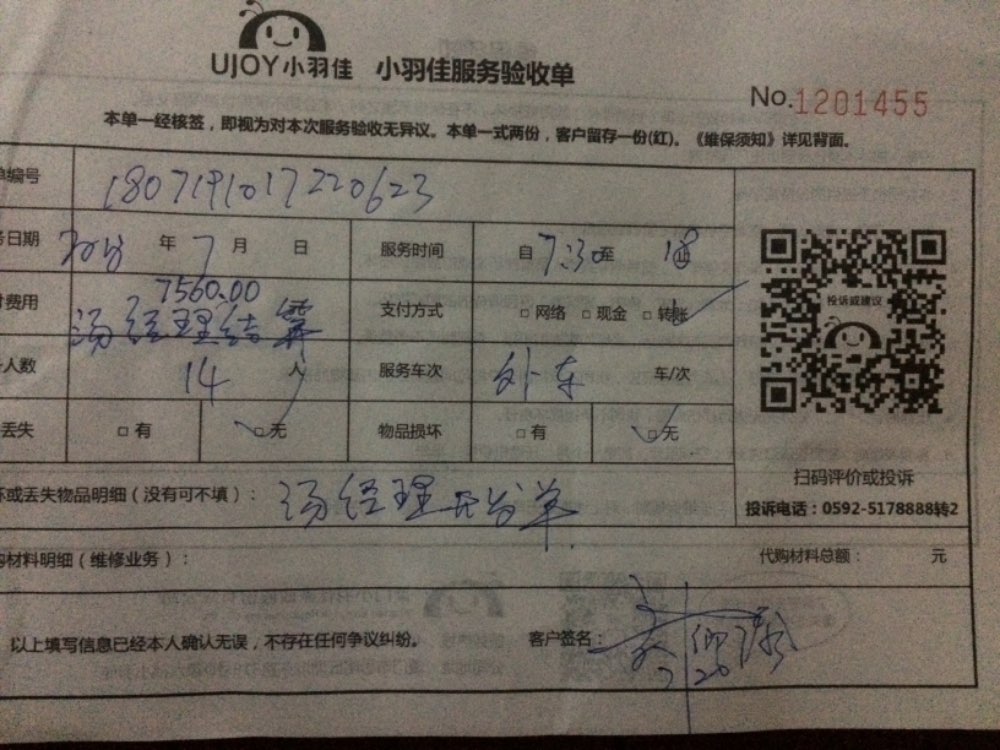 UJOY小羽佳 小羽佳服务验收单
No.1201455
本单一经核签，即视为对本次服务验收无异议。本单一式两份，客户留存一份(红)。《维保须知》详见背面。
编号 1807191017220623
日期 2018 年 7 月 日 服务时间 自 7:30 至
费用 7560.00 汤经理结算 支付方式 □ 网络 □ 现金 □ 转账
投诉或建议
人数 14 人 服务车次 外车 车/次
丢失 □ 有 □ 无 物品损坏 □ 有 □ 无
扫码评价或投诉
坏或丢失物品明细（没有可不填）： 汤经理开出单
投诉电话：0592-5178888转2
购材料明细（维修业务）： 代购材料总额： 元
以上填写信息已经本人确认无误，不存在任何争议纠纷。 客户签名：